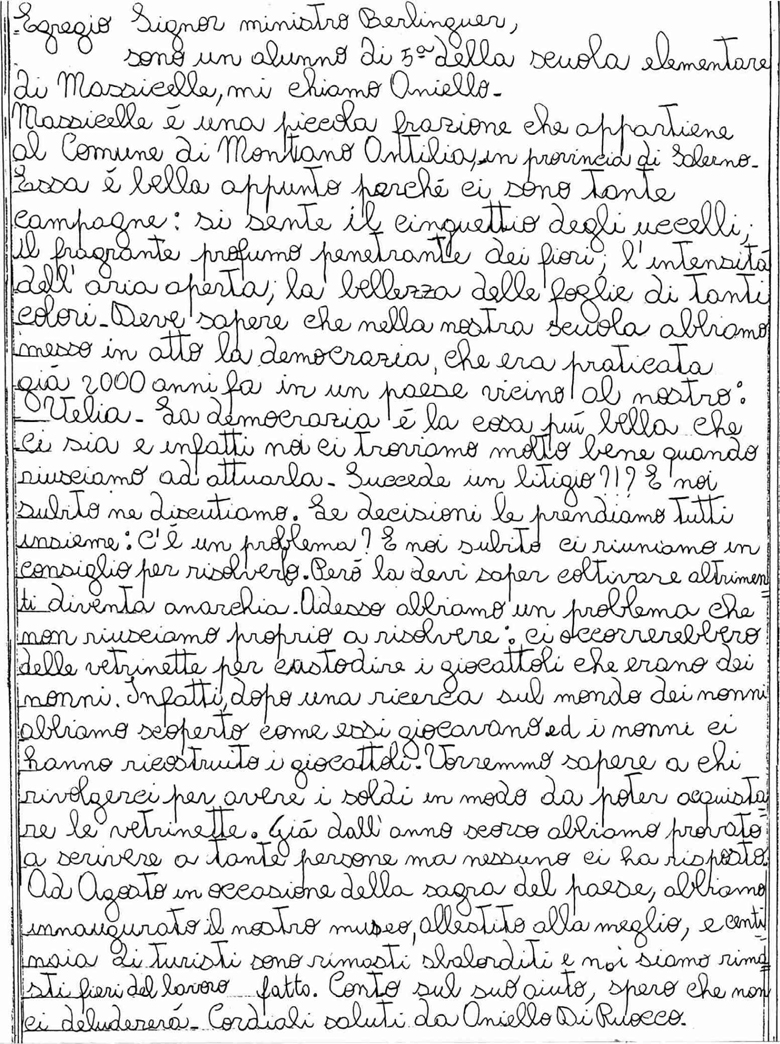 Egregio Signor ministro Berlinguer,
sono un alunno di 5ª della scuola elementare
di Massicelle, mi chiamo Aniello.
Massicelle é una piccola frazione che appartiene
al Comune di Montano Antilia, in provincia di Salerno.
Essa é bella appunto perché ci sono tante
campagne: si sente il cinguettio degli uccelli,
il fragrante profumo penetrante dei fiori, l'intensitá
dell'aria aperta, la bellezza delle foglie di tanti
colori. Deve sapere che nella nostra scuola abbiamo
messo in atto la democrazia, che era praticata
giá 2000 anni fa in un paese vicino al nostro:
Velia. La democrazia é la cosa piú bella che
ci sia e infatti noi ci troviamo molto bene quando
riusciamo ad attuarla. Succede un litigio?!? E noi
subito ne discutiamo. Le decisioni le prendiamo tutti
insieme: C'é un problema? E noi subito ci riuniamo in
consiglio per risolverlo. Peró la devi saper coltivare altrimen=
ti diventa anarchia. Adesso abbiamo un problema che
non riusciamo proprio a risolvere: ci occorrerebbero
delle vetrinette per custodire i giocattoli che erano dei
nonni. Infatti, dopo una ricerca sul mondo dei nonni
abbiamo scoperto come essi giocavano ed i nonni ci
hanno ricostruito i giocattoli. Vorremmo sapere a chi
rivolgerci per avere i soldi in modo da poter acquista=
re le vetrinette. Giá dall'anno scorso abbiamo provato
a scrivere a tante persone ma nessuno ci ha risposto.
Ad Agosto in occasione della sagra del paese, abbiamo
innaugurato il nostro museo, allestito alla meglio, e centi=
naia di turisti sono rimasti sbalorditi e noi siamo rima=
sti fieri del lavoro fatto. Conto sul suo aiuto, spero che non
ci deludererá. Cordiali saluti da Aniello Di Ruocco.